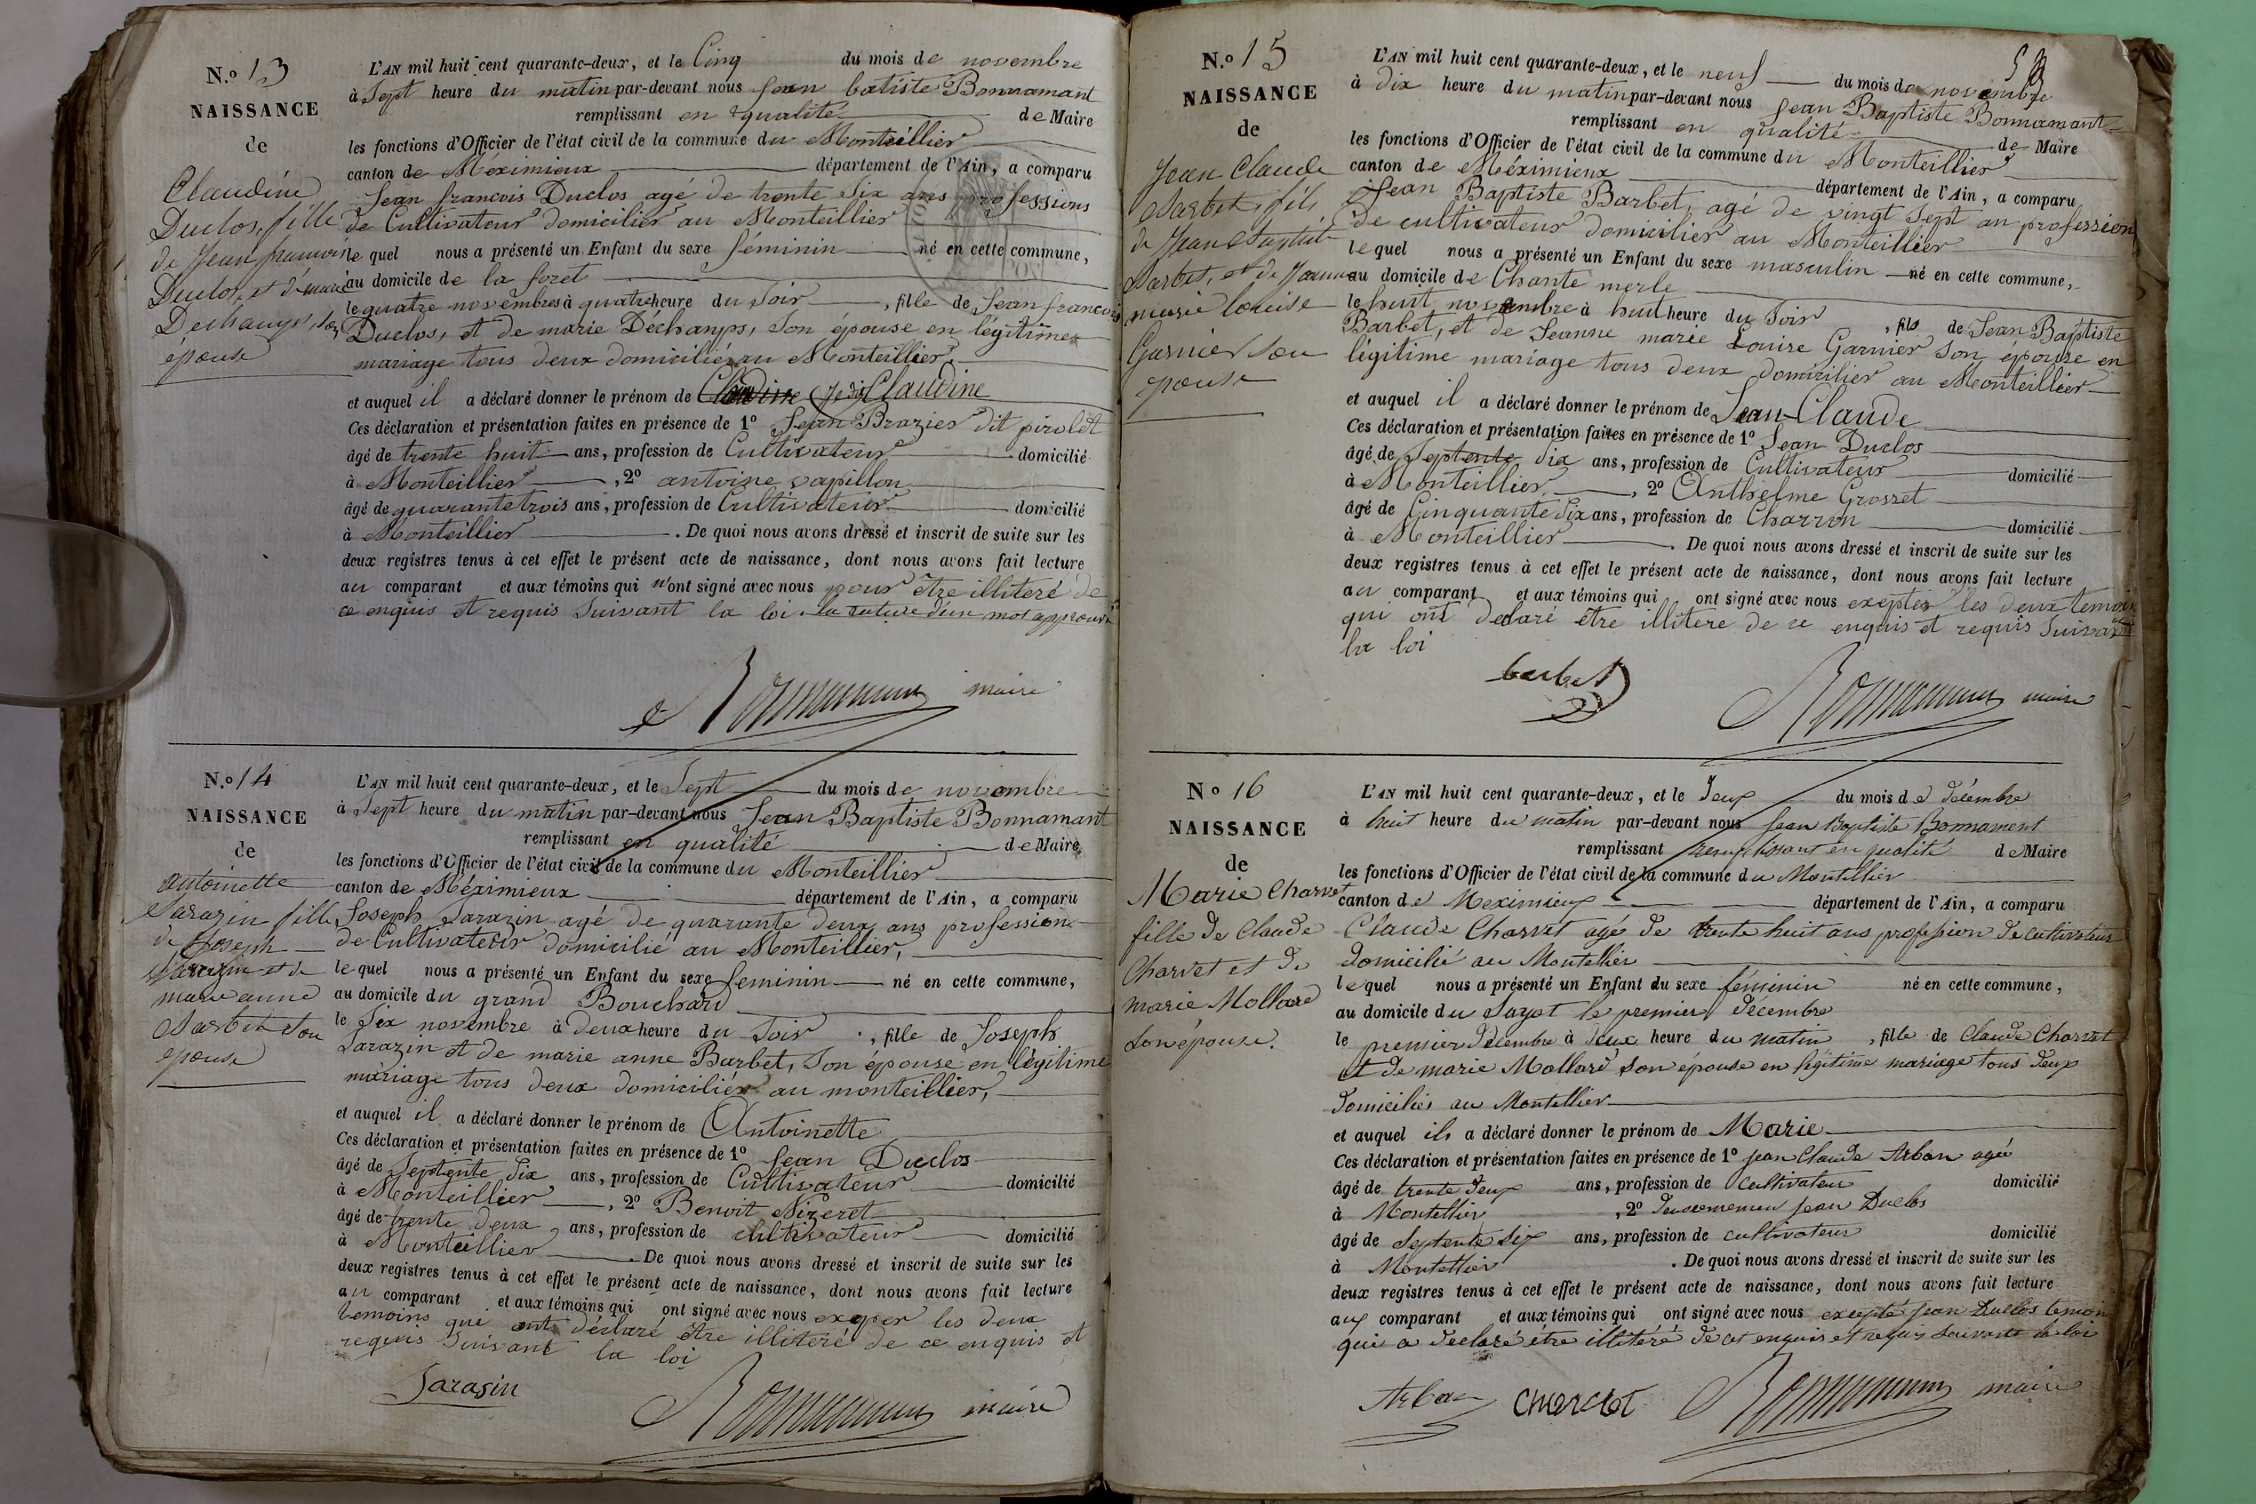 N.º 13
NAISSANCE
de
Claudine
Duclos, fille
de Jean francois
Duclos, et de marie
Dechamps, son
épouse
L'AN mil huit cent quarante-deux, et le Cinq du mois de novembre
à Sept heure du matin par-devant nous Jean batiste Bonnamant
remplissant en qualité de Maire
les fonctions d'Officier de l'état civil de la commune du Monteillier
canton de Méximieux département de l'Ain, a comparu
Jean francois Duclos agé de trente Six ans professions
de Cultivateur domicilier au Monteillier
le quel nous a présenté un Enfant du sexe féminin né en cette commune,
au domicile de la foret
le quatre novembres à quatre heure du Soir, fille de Jean francois
Duclos, et de marie Déchamps, Son épouse en légitimes
mariage tous deux domiciliés au Monteillier,
et auquel il a déclaré donner le prénom de Claudine
Ces déclaration et présentation faites en présence de 1º Jean Brazier dit pirolet
âgé de trente huit ans, profession de Cultivateur domicilié
à Monteillier, 2º antoine papillon
âgé de quarante trois ans, profession de Cultivateur domicilié
à Monteillier. De quoi nous avons dressé et inscrit de suite sur les
deux registres tenus à cet effet le présent acte de naissance, dont nous avons fait lecture
au comparant et aux témoins qui n'ont signé avec nous pour être illiteré de
ce enquis et requis Suivant la loi. la rature d'un mot approuvé
Bonnamant maire
N.º 14
NAISSANCE
de
antoinette
Sarazin fille
de Joseph
Sarazin et de
marie anne
Barbet Son
épouse
L'AN mil huit cent quarante-deux, et le Sept du mois de novembre
à Sept heure du matin par-devant nous Jean Baptiste Bonnamant
remplissant en qualité de Maire
les fonctions d'Officier de l'état civil de la commune du Monteillier
canton de Méximieux département de l'Ain, a comparu
Joseph Sarazin agé de quarante deux ans profession
de Cultivateur domicilié au Monteillier,
le quel nous a présenté un Enfant du sexe feminin né en cette commune,
au domicile du grand Bouchard
le Six novembre à deux heure du Soir, fille de Joseph
Sarazin et de marie anne Barbet, Son épouse en légitime
mariage tous deux domiciliés au monteillier,
et auquel il a déclaré donner le prénom de Antoinette
Ces déclaration et présentation faites en présence de 1º Jean Duclos
âgé de Septente Six ans, profession de Cultivateur domicilié
à Monteillier, 2º Benoit Nizeret
âgé de trente deux ans, profession de cultivateur domicilié
à Monteillier. De quoi nous avons dressé et inscrit de suite sur les
deux registres tenus à cet effet le présent acte de naissance, dont nous avons fait lecture
au comparant et aux témoins qui ont signé avec nous exepter les deux
temoins qui ont déclaré être illiteré de ce enquis et
requis Suivant la loi
Sarasin Bonnamant maire
N.º 15
NAISSANCE
de
Jean Claude
Barbet, fils
de Jean Baptiste
Barbet, et de Jeanne
marie louise
Garnier Son
épouse
L'AN mil huit cent quarante-deux, et le neuf du mois de novembre
à dix heure du matin par-devant nous Jean Baptiste Bonnamant
remplissant en qualité de Maire
les fonctions d'Officier de l'état civil de la commune du Monteillier
canton de Méximieux département de l'Ain, a comparu
Jean Baptiste Barbet, agé de vingt Sept an profession
de cultivateur domicilier au Monteillier
le quel nous a présenté un Enfant du sexe masculin né en cette commune,
au domicile de Chante merle
le huit novembre à huit heure du Soir, fils de Jean Baptiste
Barbet, et de Jeanne marie Louise Garnier Son épouse en
légitime mariage tous deux domicilier au Monteillier
et auquel il a déclaré donner le prénom de Jean-Claude
Ces déclaration et présentation faites en présence de 1º Jean Duclos
âgé de Septente Six ans, profession de Cultivateur domicilié
à Monteillier, 2º Anthelme Grosset
âgé de Cinquante Six ans, profession de Charron domicilié
à Monteillier. De quoi nous avons dressé et inscrit de suite sur les
deux registres tenus à cet effet le présent acte de naissance, dont nous avons fait lecture
au comparant et aux témoins qui ont signé avec nous exepter les deux temoin
qui ont declaré être illitere de ce enquis et requis Suivant
la loi
barbet Bonnamant maire
Nº 16
NAISSANCE
de
Marie Charvet
fille de Claude
Charvet et de
marie Mollard
Son épouse.
L'AN mil huit cent quarante-deux, et le deux du mois de décembre
à huit heure du matin par-devant nous Jean Baptiste Bonnament
remplissant remplissant en qualité de Maire
les fonctions d'Officier de l'état civil de la commune du Montellier
canton de Meximieux département de l'Ain, a comparu
Claude Charvet agé de trente huit ans profession de cultivateur
domicilié au Montellier
le quel nous a présenté un Enfant du sexe féminin né en cette commune,
au domicile du Sayet le premier décembre
le premier décembre à deux heure du matin, fille de Claude Charvet
et de marie Mollard son épouse en légitime mariage tous deux
domiciliés au Montellier
et auquel ils a déclaré donner le prénom de Marie
Ces déclaration et présentation faites en présence de 1º Jean Claude Arban agée
âgé de trente deux ans, profession de cultivateur domicilié
à Montellier, 2º deuxiemement Jean Duclos
âgé de Septente Six ans, profession de cultivateur domicilié
à Montellier. De quoi nous avons dressé et inscrit de suite sur les
deux registres tenus à cet effet le présent acte de naissance, dont nous avons fait lecture
aux comparant et aux témoins qui ont signé avec nous excepté Jean Duclos temoin
qui a declaré être illitéré de cet enquis et requis suivant la loi
Arban Charvet Bonnamant maire